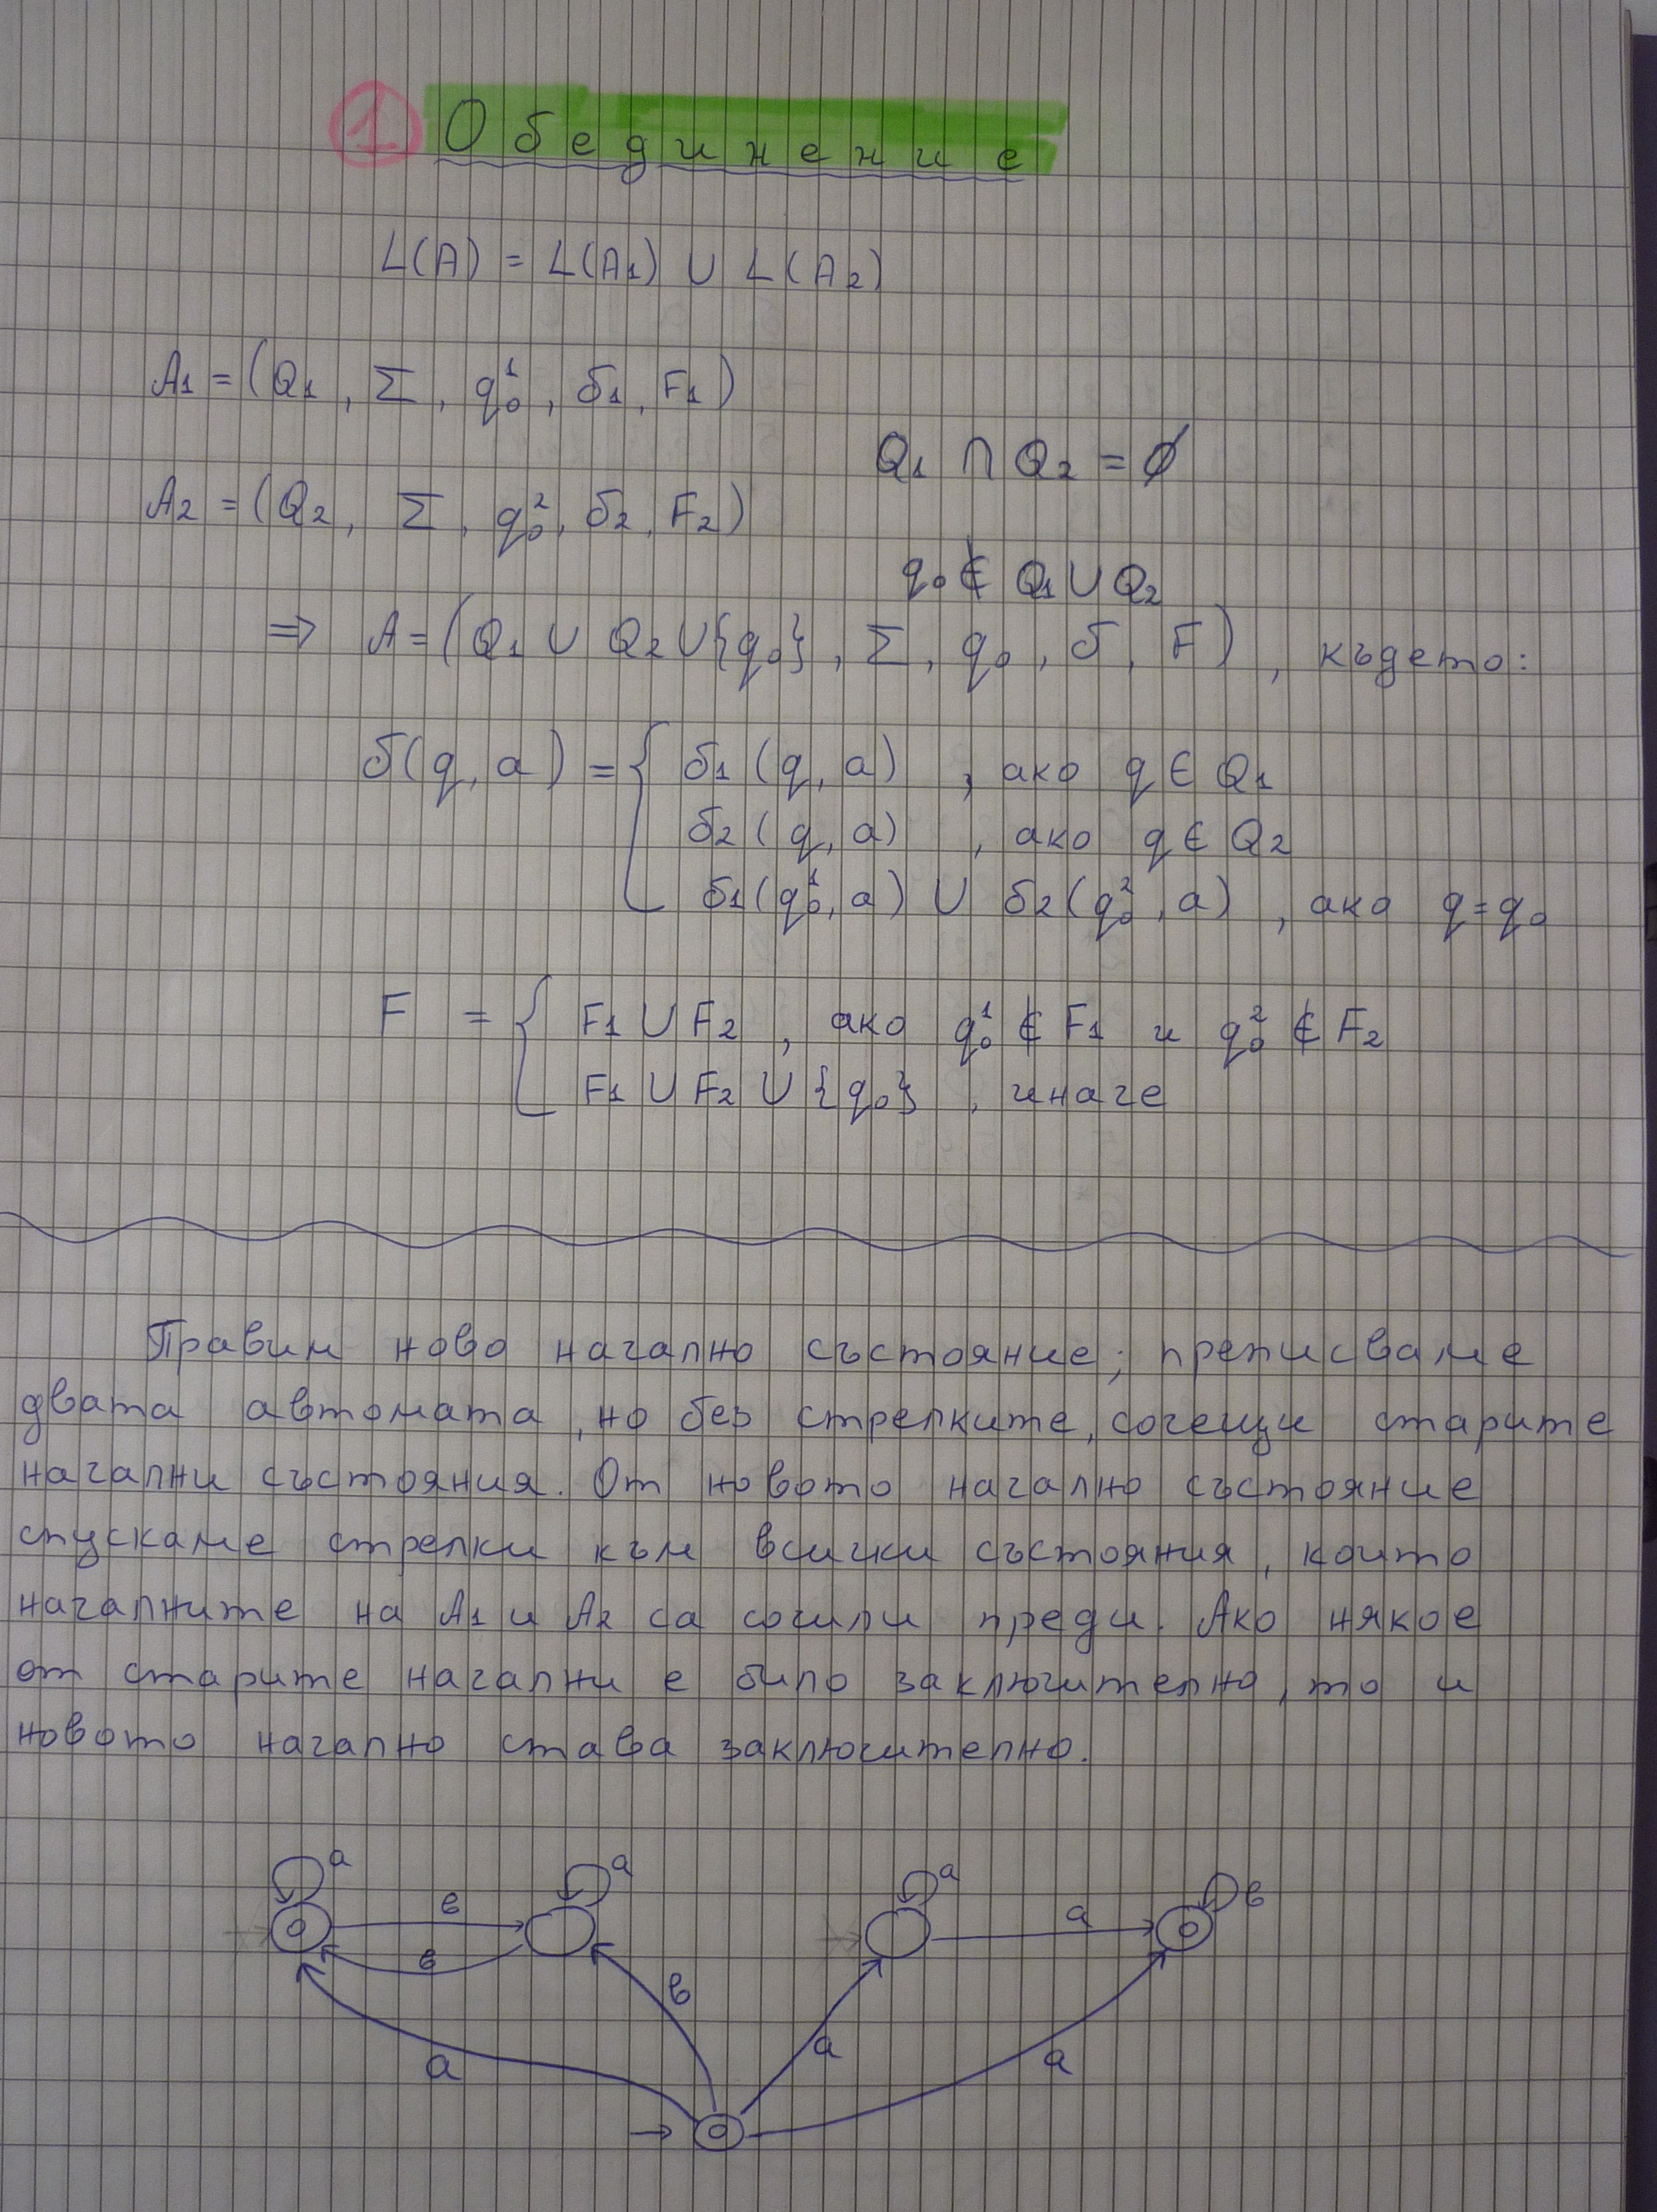 1 Обединение
L(A) = L(A₁) ∪ L(A₂)
A₁ = (Q₁, Σ, q₀¹, δ₁, F₁)
Q₁ ∩ Q₂ = ∅
A₂ = (Q₂, Σ, q₀², δ₂, F₂)
q₀ ∉ Q₁ ∪ Q₂
⇒ A = (Q₁ ∪ Q₂ ∪ {q₀}, Σ, q₀, δ, F), където:
δ(q, a) = { δ₁(q, a), ако q ∈ Q₁
δ₂(q, a), ако q ∈ Q₂
δ₁(q₀¹, a) ∪ δ₂(q₀², a), ако q = q₀
F = { F₁ ∪ F₂, ако q₀¹ ∉ F₁ и q₀² ∉ F₂
F₁ ∪ F₂ ∪ {q₀}, иначе
Правим ново начално състояние; преписваме
двата автомата, но без стрелките, сочещи старите
начални състояния. От новото начално състояние
спускаме стрелки към всички състояния, които
началните на A₁ и A₂ са сочили преди. Ако някое
от старите начални е било заключително, то и
новото начално става заключително.
a a a в
в a
в
в
a a a